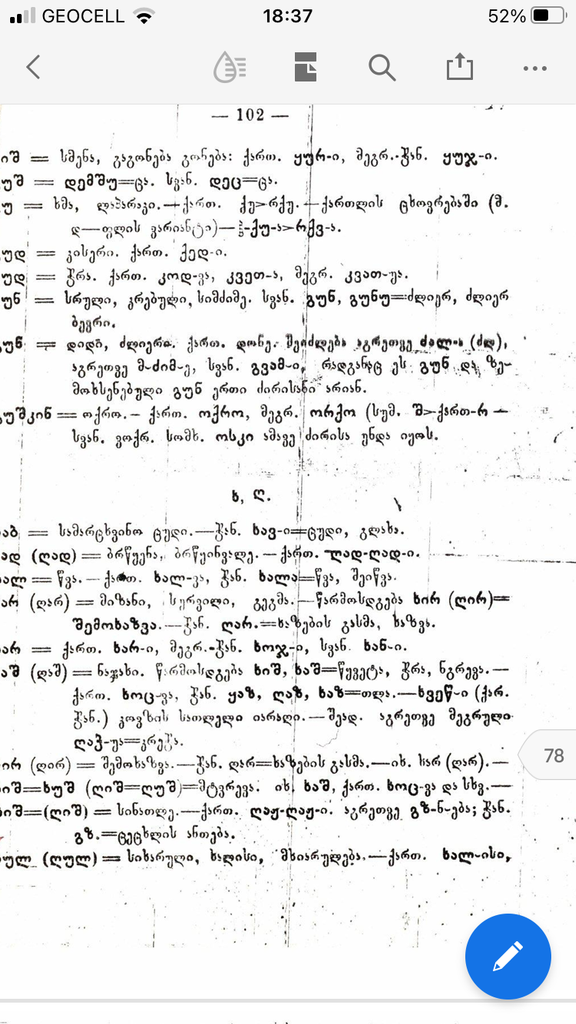 GEOCELL 18:37 52%
— 102 —
იშ = სმენა, გაგონება გონება: ქართ. ყურ-ი, მეგრ.-ჭან. ყუჯ-ი.
უშ = დემშუ=ცა. სვან. დეც=ცა.
უ = ხმა, ლაპარაკი.—ქართ. ქუ>რქუ.—ქართლის ცხოვრებაში (მ.
დ—ფლის ვარიანტი)— -ქუ-ა>რქვ-ა.
უდ = კისერი. ქართ. ქედ-ი.
უდ = ჭრა. ქართ. კოდ-ვა, კვეთ-ა, მეგრ. კვათ-უა.
უნ = სრული, კრებული, სიმძიმე. სვან. გუნ, გუნუ=ძლიერ, ძლიერ
ბევრი.
უნ = დიდი, ძლიერი. ქართ. ღონე. შეიძლება აგრეთვე ძალ-ი (ძლ),
აგრეთვე მ-ძიმ-ე, სვან. გვამ-ი, რადგანაც ეს გუნ და ზე-
მოხსენებული გუნ ერთი ძირისანი არიან.
უშკინ = ოქრო.— ქართ. ოქრო, მეგრ. ორქო (სუმ. შ>ქართ-რ —
სვან. ვოქრ. სომხ. ოსკი ამავე ძირისა უნდა იყოს.
ხ, ღ.
აბ = სამარცხვინო ცუდი.—ჭან. ხავ-ი=ცუდი, გლახა.
ად (ღად) = ბრწყენა, ბრწყინვალე.— ქართ. ღად-ღად-ი.
ალ = წვა.— ქართ. ხალ-ვა, ჭან. ხალა=წვა, შეიწვა.
არ (ღარ) = მიზანი, სურვილი, გეგმა.—წარმოსდგება ხირ (ღირ)=
შემოხაზვა.—ჭან. ღარ.=ხაზების გასმა, ხაზვა.
არ = ქართ. ხარ-ი, მეგრ.-ჭან. ხოჯ-ი, სვან. ხან-ი.
აშ (ღაშ) = ნაჯახი. წარმოსდგება ხიშ, ხაშ=წყვეტა, ჭრა, ნგრევა.—
ქართ. ხოც-ვა, ჭან. ყაზ, ღაზ, ხაზ=თლა.—ხვეწ-ი (ქარ.
ჭან.) კოვზის სათლელი იარაღი.—შეად. აგრეთვე მეგრული
ღაჭ-უა=კრეჭა.
ირ (ღირ) = შემოხაზვა.—ჭან. ღარ=ხაზების გასმა.—იხ. ხარ (ღარ).—
იშ=ხუშ (ღიშ=ღუშ)=მტვრევა. იხ. ხაშ, ქართ. ხოც-ვა და სხვ.—
იშ=(ღიშ) = სინათლე.—ქართ. ღაჟ-ღაჟ-ი. აგრეთვე გზ-ნ-ება; ჭან.
გზ.=ცეცხლის ანთება.
ულ (ღულ) = სიხარული, ხალისი, მხიარულება.—ქართ. ხალ-ისი,
78